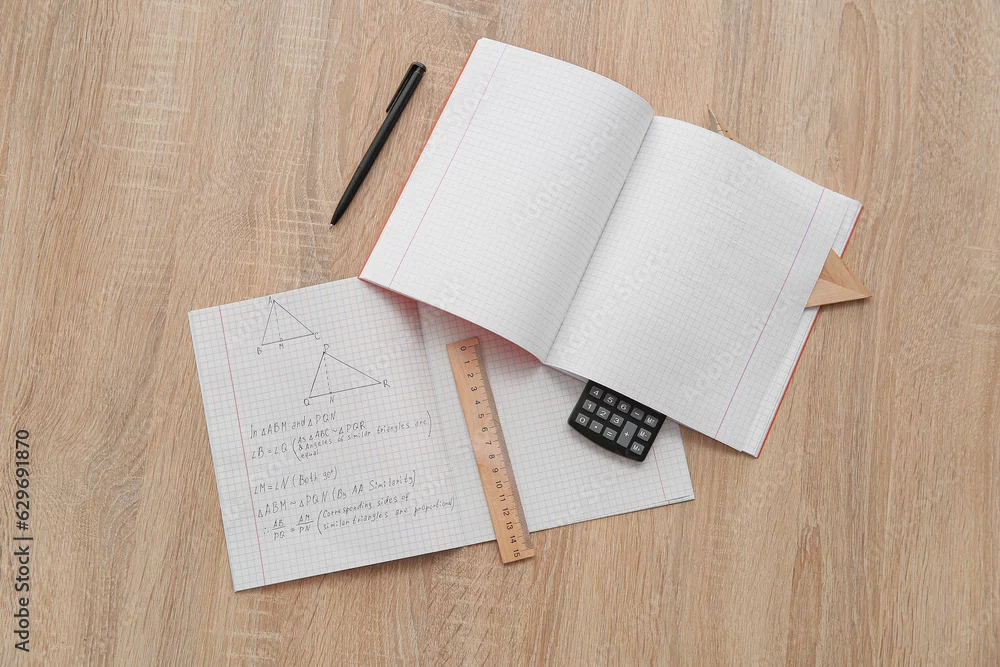 A
B M C
P
Q N R
In △ABM and △PQN
∠B = ∠Q (As △ABC ~ △PQR
& Angeles of similar triangles are
equal)
∠M = ∠N (Both 30°)
△ABM ~ △PQN (By AA Similarity]
∴ AB/PQ = AM/PN (Corresponding sides of
similar triangles are proportional)
0 1 2 3 4 5 6 7 8 9 10 11 12 13 14 15
4 5 6 −
1 2 3 + M-
0 . = M+
Adobe Stock | #629691870